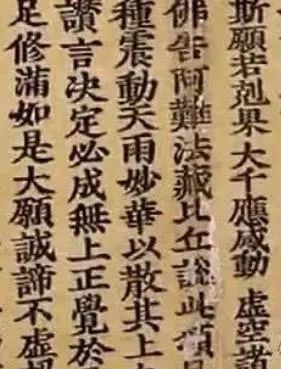 斯願若剋果大千應感動 虛空諸
佛告阿難法藏比丘說此頌
種震動天雨妙華以散其上
讚言決定必成無上正覺於
足修滿如是大願誠諦不虛